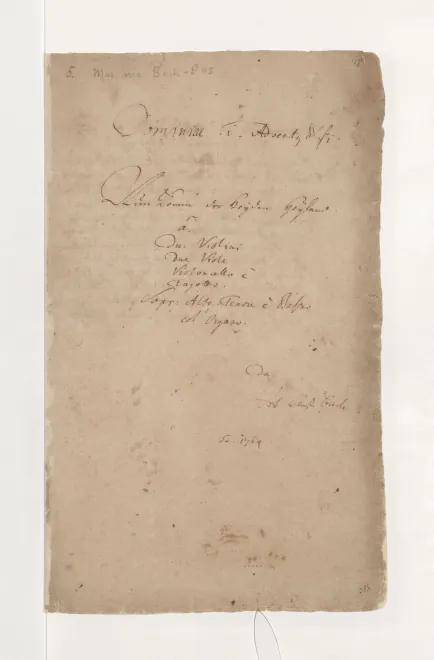 5. Mus. ms. Bach P 45
Dominica 1. Adventus Xsti.
Nun komm der Heyden Heyland
â
Due Violini
Due Viole
Violoncello è
Fagotto.
Sopr: Alto. Tenore è Basso
col' Organo.
Da
Bach